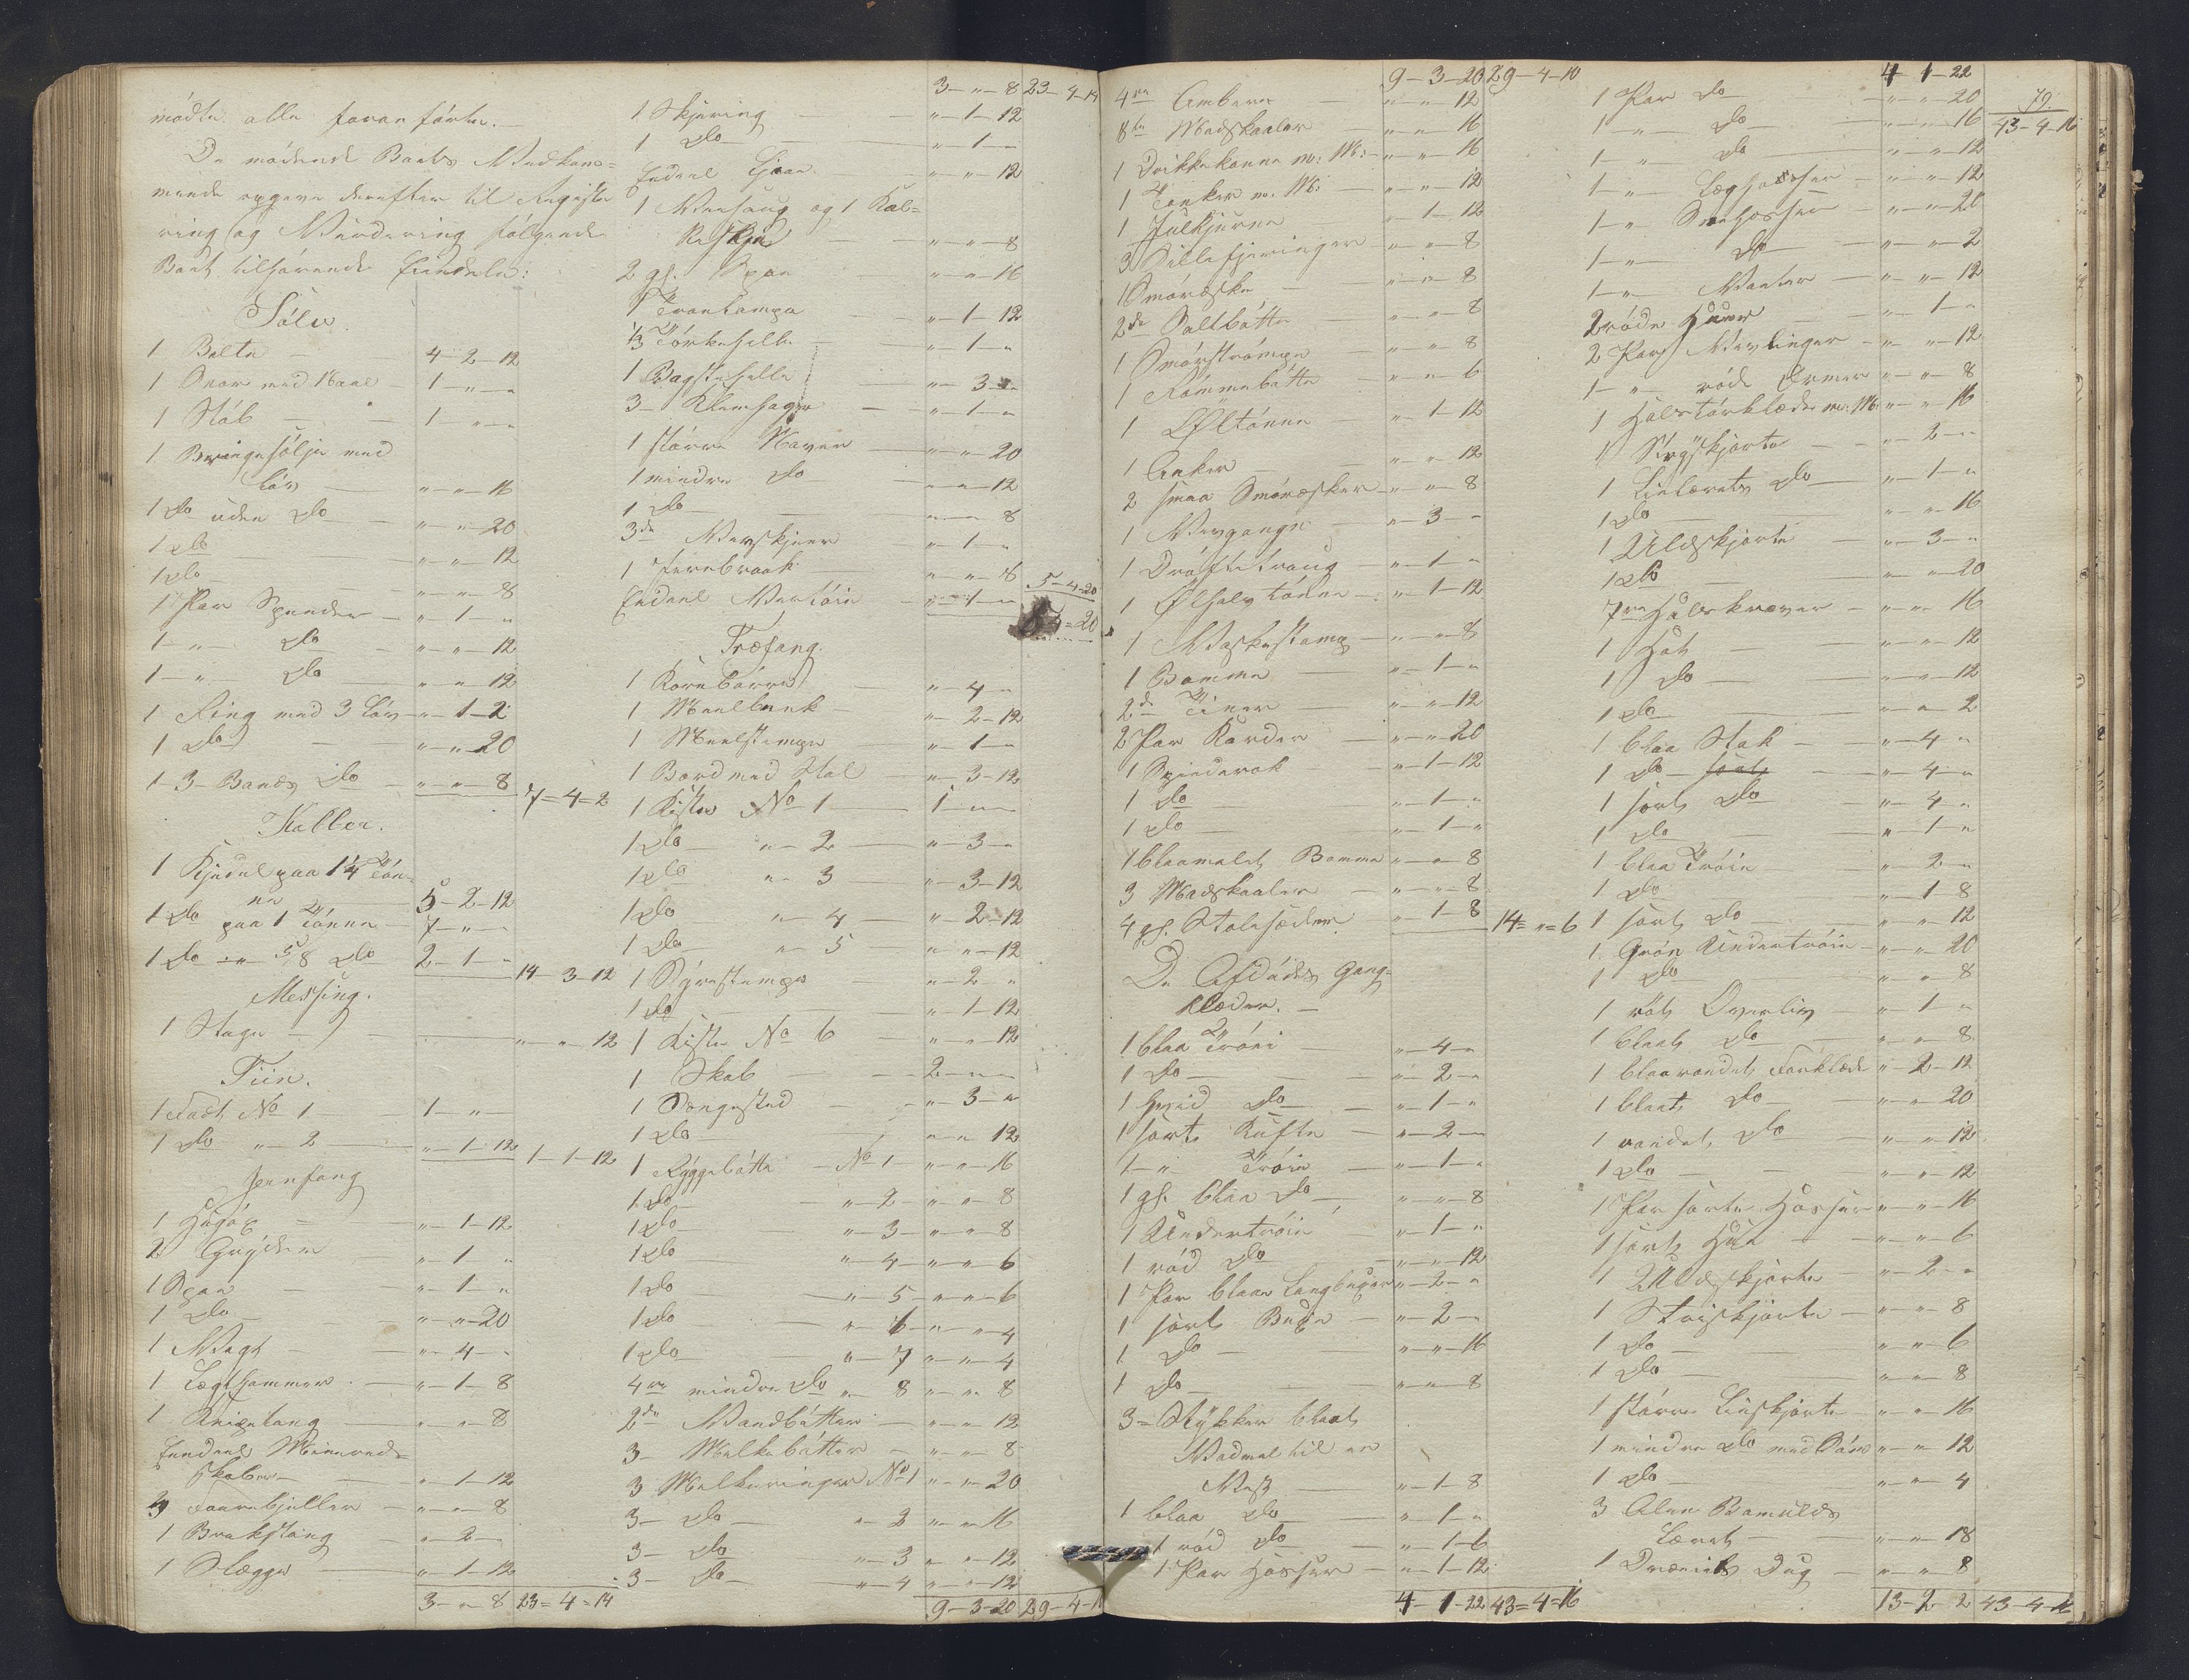 mødte alle foranførte. —
De mødende Boets Vedkom=
mende opgave derefter til Registe
ring og Vurdering følgende
Boet tilhørende Eiendele:
Sølv.
1 Belte — 4-2-12
1 Snor med Naal — 1-"-"
1 Støb — 1-"-"
1 Bringesølje med
Løv — "-"-16
1 Do uden Do — "-"-20
1 Do — "-"-12
1 Do — "-"-8
1 Par Spender — "-1-"
1-"- Do — "-"-12
1-"- Do — "-"-12
1 Ring med 3 Løv — "-1-2
1 Do — "-"-20
1-3-Bands Do — "-"-8 7=4=2
Kobber.
1 Kjedel paa 1¼ Tøn=
ne 5-2-12
1 Do paa 1 Tønne — 7-"-"
1 Do -"- 5/8 Do 2-1-" 14-3-12
Messing.
1 Stage — "-"-12
Tiin.
1 Fadt No 1 — 1-"-
1 Do "-2 — "-1-12 1-1-12
Jernfang
1 — "-1-12
2 Gryder — "-1-"
1 Span — "-1-"
1 Do — "-"-20
1 Vægt — "-4-"
1 Lægthammer — "-1-8
1 Knipetang — "-"-8
Eendeel Minered=
skaber — "-1-12
3 Faarebjeller — "-"-8
1 Brækstang — "-2-
1 Slægge — "-1-12
3-"-8 23=4=14
3-"-8 23-4-14
1 Skjæring — "-1-12
1 Do — "-1-"
Endeel Ljaae — "-"-12
1 Veesaug og 1 Kal=
"-"-8
2 gl. Span — "-"-16
1 Tranlampe — "-1-12
1/3 Tørkehelle — "-1-"
1 Bagstehelle — "-3-"
3- — "-1-"
1 større Naver — "-"-20
1 mindre Do — "-"-12
1 Do — "-"-8
3de Vevskjeer — "-1-"
1 — "-"-8 5-4-20
Endeel Værtøie — "-1-"
Træfang.
1 Kornbørre — "-4-"
1 Meelbenk — "-2-12
1 Meelstampe — "-1-"
1 Bord med Stol — "-3-12
1 Kiste No 1 — 1-"-"
1 Do "-2 — "-3-"
1 Do "-3 — "-3-12
1 Do "-4 — "-2-12
1 Do "-5 — "-"-12
1 Syrestampe — "-2-"
1 Do — "-1-12
1 Kiste No 6 — "-"-12
1 Skab — 2-"-"
1 Sengested — "-3-"
1 Do — "-"-12
1 Ryggebøtte No 1 — "-"-16
1 Do "-2 — "-"-8
1 Do "-3 — "-"-8
1 Do "-4 — "-"-6
1 Do "-5 — "-"-6
1 Do "-6 — "-"-4
1 Do "-7 — "-"-4
4re mindre Do "-8 — "-"-8
2de Vandbøtter — "-"-12
3- Melkebøtter — "-"-8
3 Melkeringer No 1 "-"-20
3- Do "-2 — "-"-16
3- Do "-3 — "-"-12
3- Do "-4 — "-"-12
9-3-20 29-4-1
9-3-20 29-4-10
4re Ambere — "-"-12
8te Madskaaler — "-"-16
1 Drikkekanne m: M: "-"-16
1 Tønker m. M: — "-"-12
1 Julkjerne — "-1-12
3 Sildefjeringer — "-"-8
1 Smøræske — "-"-8
2de Saltbøtter — "-"-8
1 Smørstrømpe — "-"-8
1 Rømmebøtte — "-"-6
1 Øltønne — "-1-12
1 Anker — "-"-12
2 smaa Smøræsker "-"-8
1 Vevgange — "-3-"
1 Drøftetraug — "-1-"
1 Ølhalvtønne — "-1-12
1 Vaskestamp — "-"-8
1 Bomme — "-1-"
2de Tiner — "-"-12
2 Par Karder — "-"-20
1 Spinderok — "-1-12
1 Do — "-1-"
1 Do — "-1-"
1 blaamalet Bomme "-"-8
3 Madskaaler — "-"-8
4 gl. Stolesæder — "-1-8 14="=6
De Afdødes Gang=
klæder. —
1 blaa Trøie — "-4-"
1 Do — "-2-"
1 hvid Do — "-1-"
1 sort Kufte — "-2-"
1-"- Trøie — "-1-"
1 gl. blaa Do — "-"-8
1 Undertrøie — "-1-"
1 rød Do — "-"-12
1 Par blaae Langbuxer "-2-"
1 sort Buxe — "-2-"
1 Do — "-"-16
1 Do — "-"-8
3= Stykker blaat
Vadmel til en
Vest — "-1-8
1 blaa Do — "-1-"
1 rød Do — "-1-6
1 Par Hosser — "-1-12
4-1-22 43=4=16
4-1-22
79.
43-4-16
1 Par Do — "-"-20
1-"- Do — "-"-16
1-"- Do — "-"-12
1-"- Læghosser — "-"-12
1-"- Sneehosser — "-"-20
1-"- Do — "-"-2
1-"- Vanter — "-"-12
2 røde Huer — "-1-"
2 Par Vevlinger — "-"-12
1-"- røde Ærmer "-"-8
1 Halstørklæde m: M: "-"-16
1 Strigskjorte — "-2-"
1 Linlærets Do — "-1-"
1 Do — "-"-16
1 Uldskjorte — "-3-"
1 Do — "-"-20
7 Halskraver — "-"-16
1 Hat — "-"-12
1 Do — "-"-12
1 Do — "-"-2
1 blaa Stak — "-4-"
1 Do sort — "-4-"
1 sort Do — "-4-"
1 Do — "-1-"
1 blaa Trøie — "-2-"
1 Do — "-1-8
1 sort Do — "-"-12
1 Grøn Undertrøie — "-"-20
1 Do — "-"-8
1 rødt Overliv — "-1-"
1 blaat Do — "-"-8
1 blaarandet Forklæde "-2-12
1 blaat Do — "-"-20
1 randet Do — "-"-12
1 Do — "-"-12
1 Par sorte Hosser "-"-16
1 sort Hue — "-"-6
1 Uldskjorte — "-2-"
1 Striskjorte — "-"-8
1 Do — "-"-6
1 Do — "-"-8
1 større Linskjorte "-"-16
1 mindre Do med "-"-12
1 Do — "-"-4
3 Alen Bomulds
Lærret — "-"-18
1 Dug — "-"-8
13-2-2 43-4-16